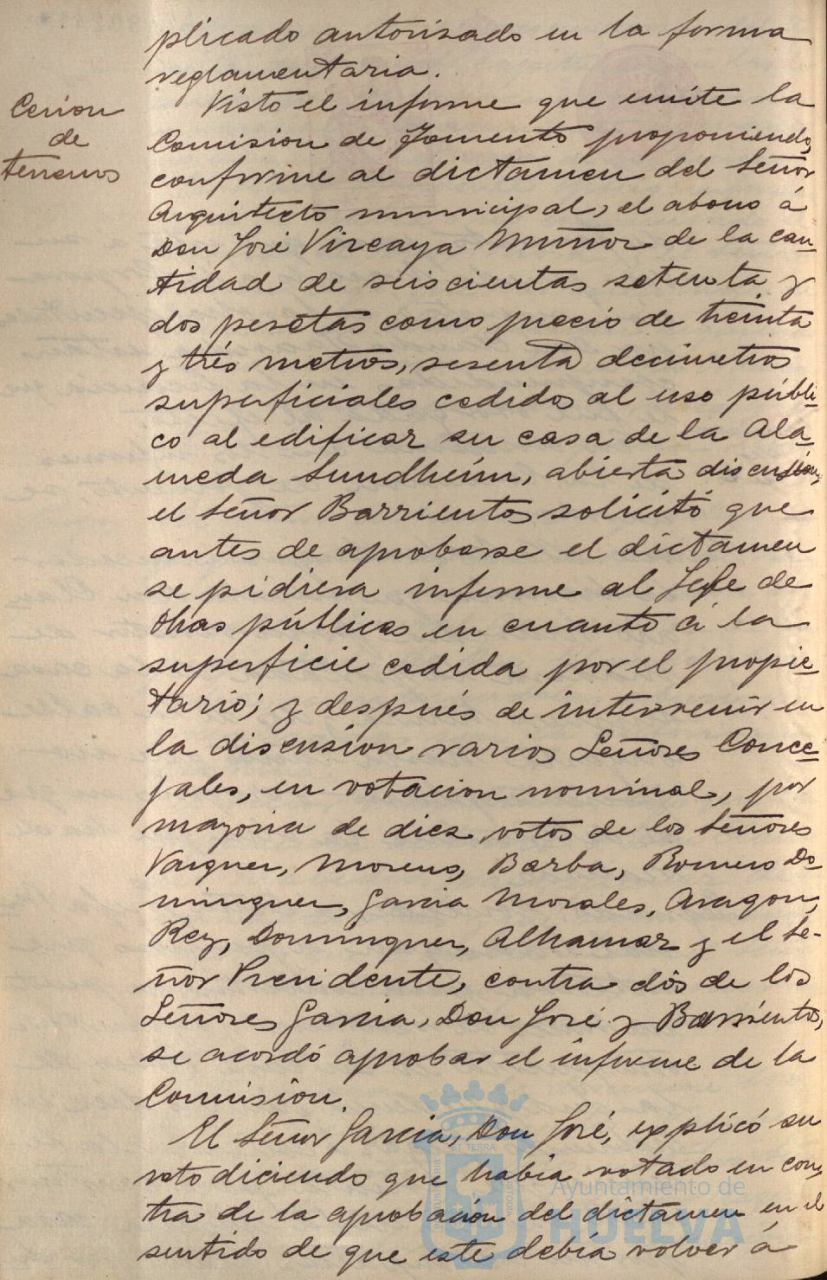 plicado autorizado en la forma
reglamentaria.
Cesion
de
terrenos
Visto el informe que emite la
Comision de Fomento proponiendo,
conforme al dictamen del Señor
Arquitecto municipal, el abono á
Don José Vizcaya Muñoz de la can-
tidad de seiscientas setenta y
dos pesetas como precio de treinta
y trés metros, sesenta decimetros
superficiales cedidos al uso públi-
co al edificar su casa de la Ala-
meda Sundheim, abierta discusión,
el Señor Barrientos solicitó que
antes de aprobarse el dictamen
se pidiera informe al Jefe de
Obras públicas en cuanto á la
superficie cedida por el propie-
tario; y después de intervenir en
la discusion varios Señores Conce-
jales, en votacion nominal, por
mayoria de diez votos de los Señores
Vazquez, Moreno, Barba, Romero Do-
minguez, Garcia Morales, Aragon,
Rey, Dominguez, Alhamar y el Se-
ñor Presidente, contra dós de los
Señores Garcia, Don José y Barrientos,
se acordó aprobar el informe de la
Comisión.
El Señor Garcia, Don José, explicó su
voto diciendo que habia votado en con-
tra de la aprobación del dictamen en el
sentido de que este debia volver á
Ayuntamiento de
HUELVA